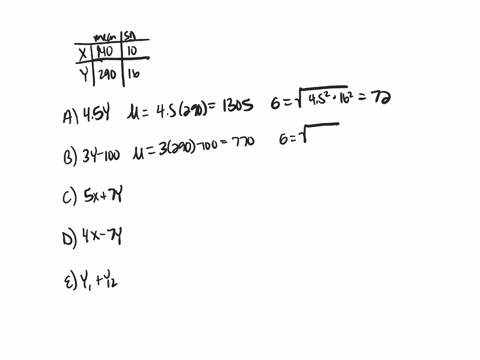 mean SD
X 140 10
Y 290 16
A) 4.5Y μ = 4.5(290) = 1305 б = √4.5² · 16² = 72
B) 3Y-100 μ = 3(290)-100 = 770 б = √
C) 5x+7Y
D) 4x-7Y
E) Y₁ + Y₂